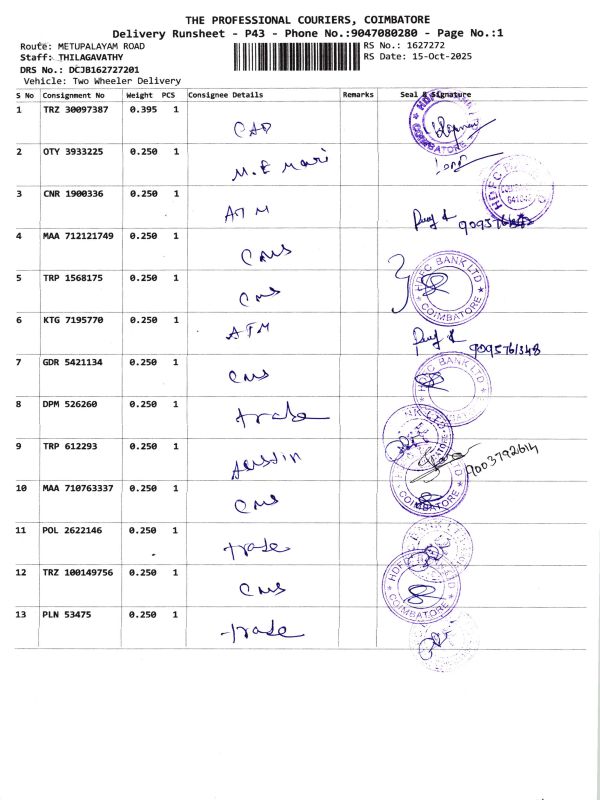 THE PROFESSIONAL COURIERS, COIMBATORE
Delivery Runsheet - P43 - Phone No.:9047080280 - Page No.:1
Route: METUPALAYAM ROAD RS No.: 1627272
Staff: THILAGAVATHY RS Date: 15-Oct-2025
DRS No.: DCJB162727201
Vehicle: Two Wheeler Delivery
S No Consignment No Weight PCS Consignee Details Remarks Seal & Signature
1 TRZ 30097387 0.395 1 CAD
2 OTY 3933225 0.250 1 M.E Mari
3 CNR 1900336 0.250 1 ATM
4 MAA 712121749 0.250 1 CMS
5 TRP 1568175 0.250 1 CMS HDFC BANK LTD COIMBATORE
6 KTG 7195770 0.250 1 ATM 9095761348
7 GDR 5421134 0.250 1 CMS HDFC BANK LTD
8 DPM 526260 0.250 1 trade
9 TRP 612293 0.250 1 Austin 9003792614
10 MAA 710763337 0.250 1 CMS COIMBATORE
11 POL 2622146 0.250 1 trade
12 TRZ 100149756 0.250 1 CMS COIMBATORE
13 PLN 53475 0.250 1 trade